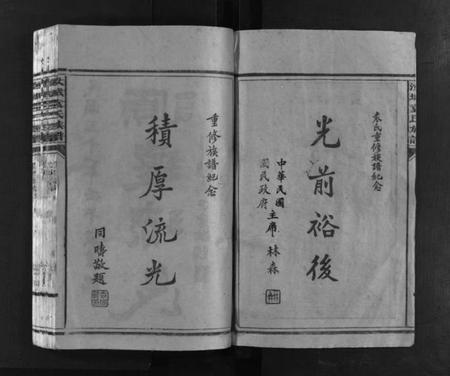 袁氏重修族譜紀念
光前裕後
中華民國
國民政府
主席
林森
重修族譜紀念
積厚流光
同疇敬題